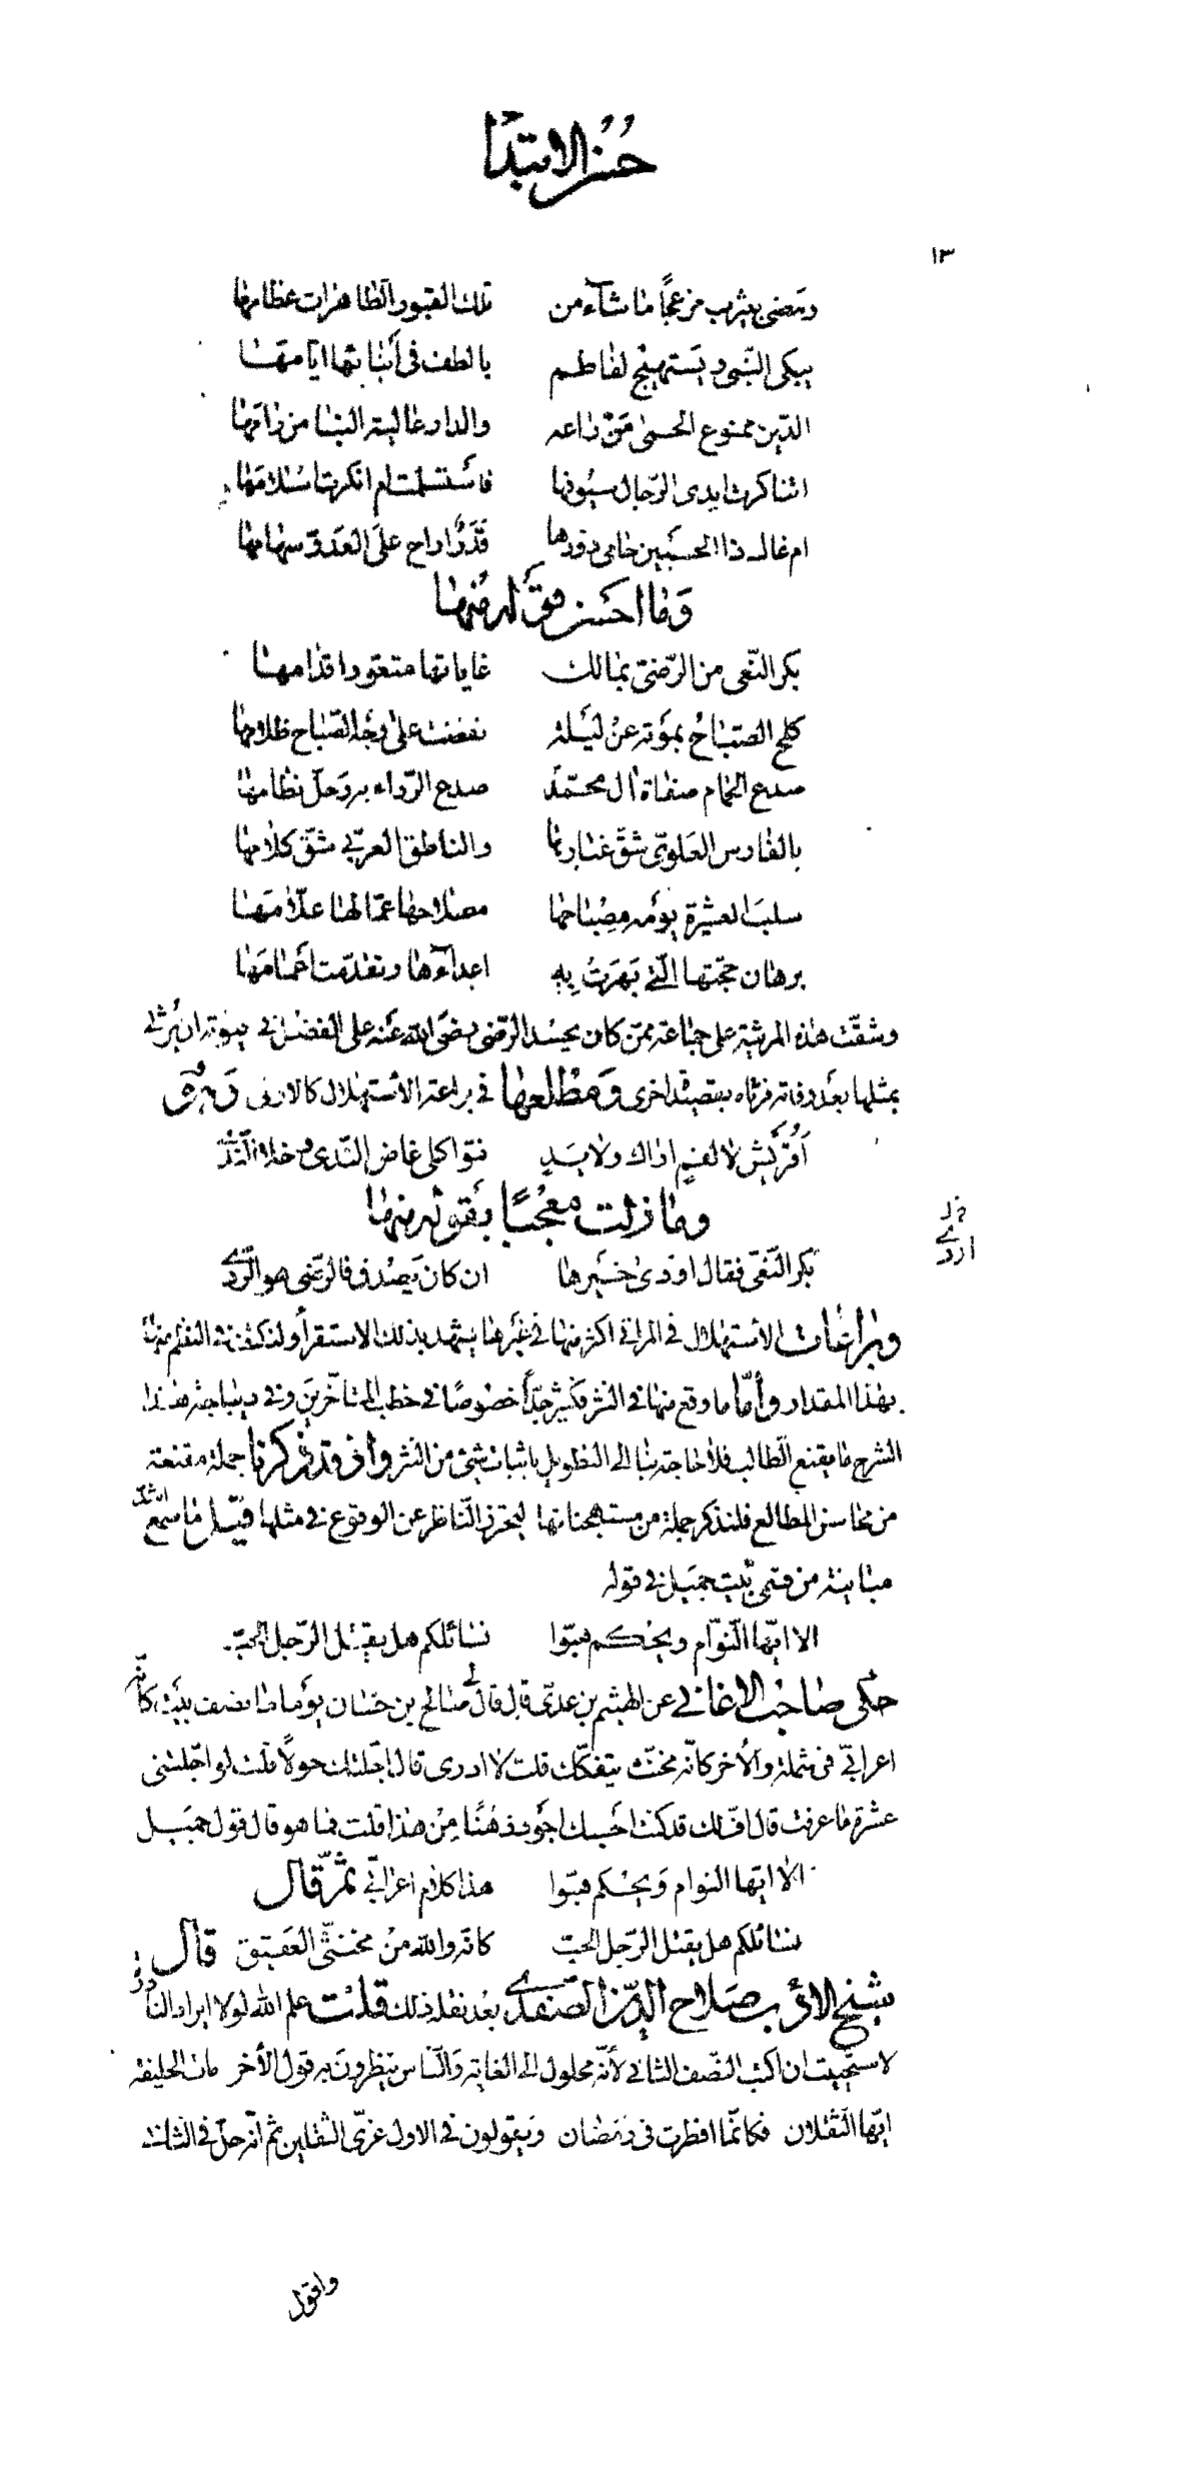 حسن الابتدا
١٣
ومضى بيثرب مزعجا ما شاء من تلك القبور الطاهرات عظامها
يبكي النبي ويستهيج لفاطم بالطف في أبنائها ايامها
الدين ممنوع الحمى من راعه والدار عالية البنا من رامها
اتناكرت ايدي الرجال سيوفها فاستسلمت ام انكرت اسلامها
ام غال ذا الحسبين حامي ذودها قدر اراح على العدو سهامها
وما احسن قوله منها
بكر النعي من الرضي بمالك غاياتها متعود اقدامها
كلح الصباح بموته عن ليلة نفضت على وجه الصباح ظلامها
صدع الحمام صفاة ال محمد صدع الرداء به وحل نظامها
بالفارس العلوي شق غبارها والناطق العربي شق كلامها
سلب العشيرة يومه مصباحها مصلاحها عمالها علامها
برهان حجتها التي بهرت به اعداءها وتقدمت اعمامها
وشقت هذه المرثية على جماعة ممن كان يحسد الرضي رضي الله عنه على الفضل في ان يرثى
بمثلها بعد وفاته فرثاه بقصيدة اخرى ومطلعها في براعة الاستهلال كالاولى وهو
أقريش لا لفم اراك ولا يد فتواكلي غاض الندى وخلا الندي
وما زلت معجبا بقوله منها
بكر النعي فقال اودى خيرها ان كان يصدق فالرضي هو الردي
وبراعات الاستهلال في المراثي اكثر منها في غيرها يشهد بذلك الاستقرأ ولنكتف في النظم منها
بهذا المقدار وأما ما وقع منها في النثر فكثير جدا خصوصا في خطب المتأخرين وفي ديباجة هذا
الشرح ما يقنع الطالب فلا حاجة بنا الى التطويل باثبات شيئ من النثر واذ قد ذكرنا جملة مقنعة
من محاسن المطالع فلنذكر جملة من مستهجناتها ليحترز الناظر عن الوقوع في مثلها قيل ما سمع اشد
مباينة من قسمي بيت جميل في قوله
الا ايها النوام ويحكم هبوا نسائلكم هل يقتل الرجل الحب
حكى صاحب الاغاني عن الهيثم بن عدي قال قال لي صالح بن حسان يوما ما نصف بيت كانه
اعرابي في شملة والأخر كانه مخنث يتفكك قلت لا ادري قال اجلتك حولا قلت لو اجلتني
عشرة ما عرفت قال اف لك قد كنت احسبك اجود ذهنا من هذا قلت فما هو قال قول جميل
الا ايها النوام ويحكم هبوا هذا كلام اعرابي ثم قال
نسائلكم هل يقتل الرجل الحب كانه والله من مخنثي العقيق قال
شيخ الادب صلاح الدين الصفدي بعد نقله ذلك قلت علم الله لولا ايراد
لاستحييت ان اكتب النصف الثاني لأنه محلول الى الغاية والناس ينظرون به قول الأخر مات الخليفة
ايها الثقلان فكانما افطرت في رمضان ويقولون في الاول عزى الثقلين ثم انه حل في الثاني
واقول